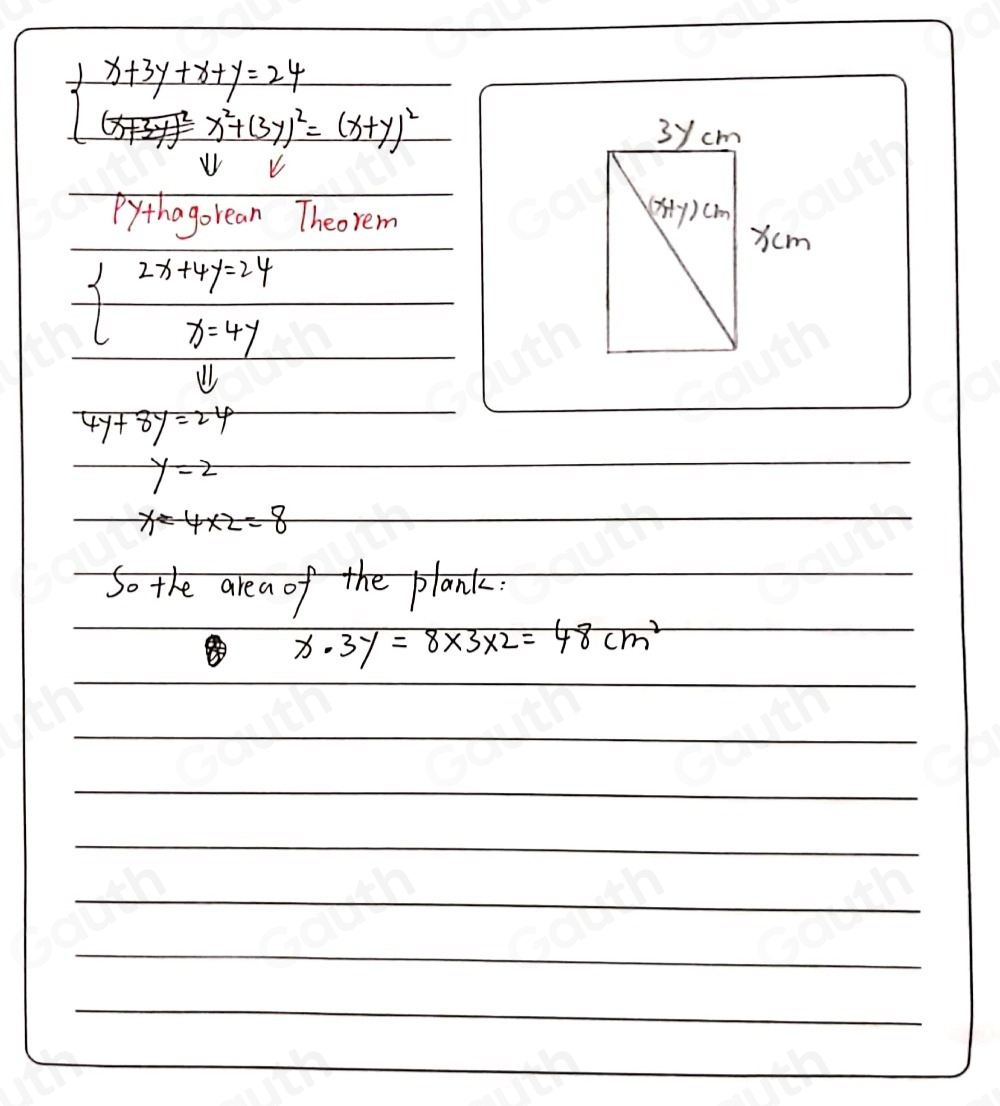 x+3y+x+y=24
x²+(3y)²=(x+y)²
Pythagorean Theorem
2x+4y=24
x=4y
4y+8y=24
y=2
x=4×2=8
So the area of the plank:
x·3y=8×3×2=48cm²
3ycm
(x+y)cm
xcm
Gauth